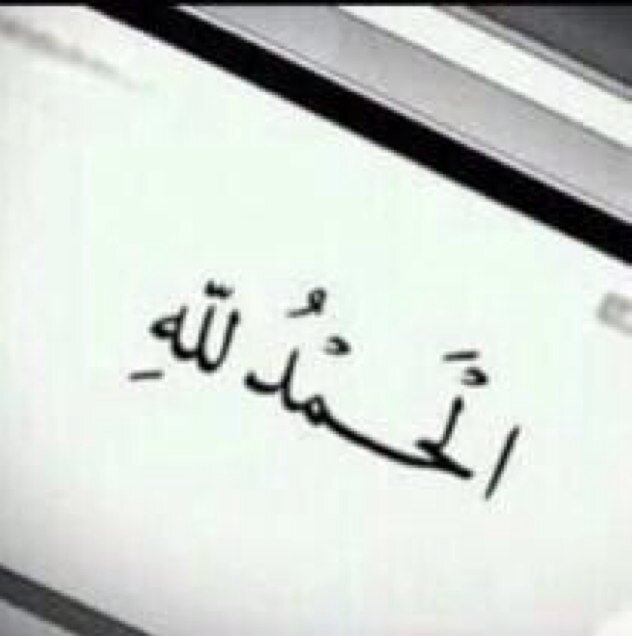 الْحَمْدُ لِلّهِ